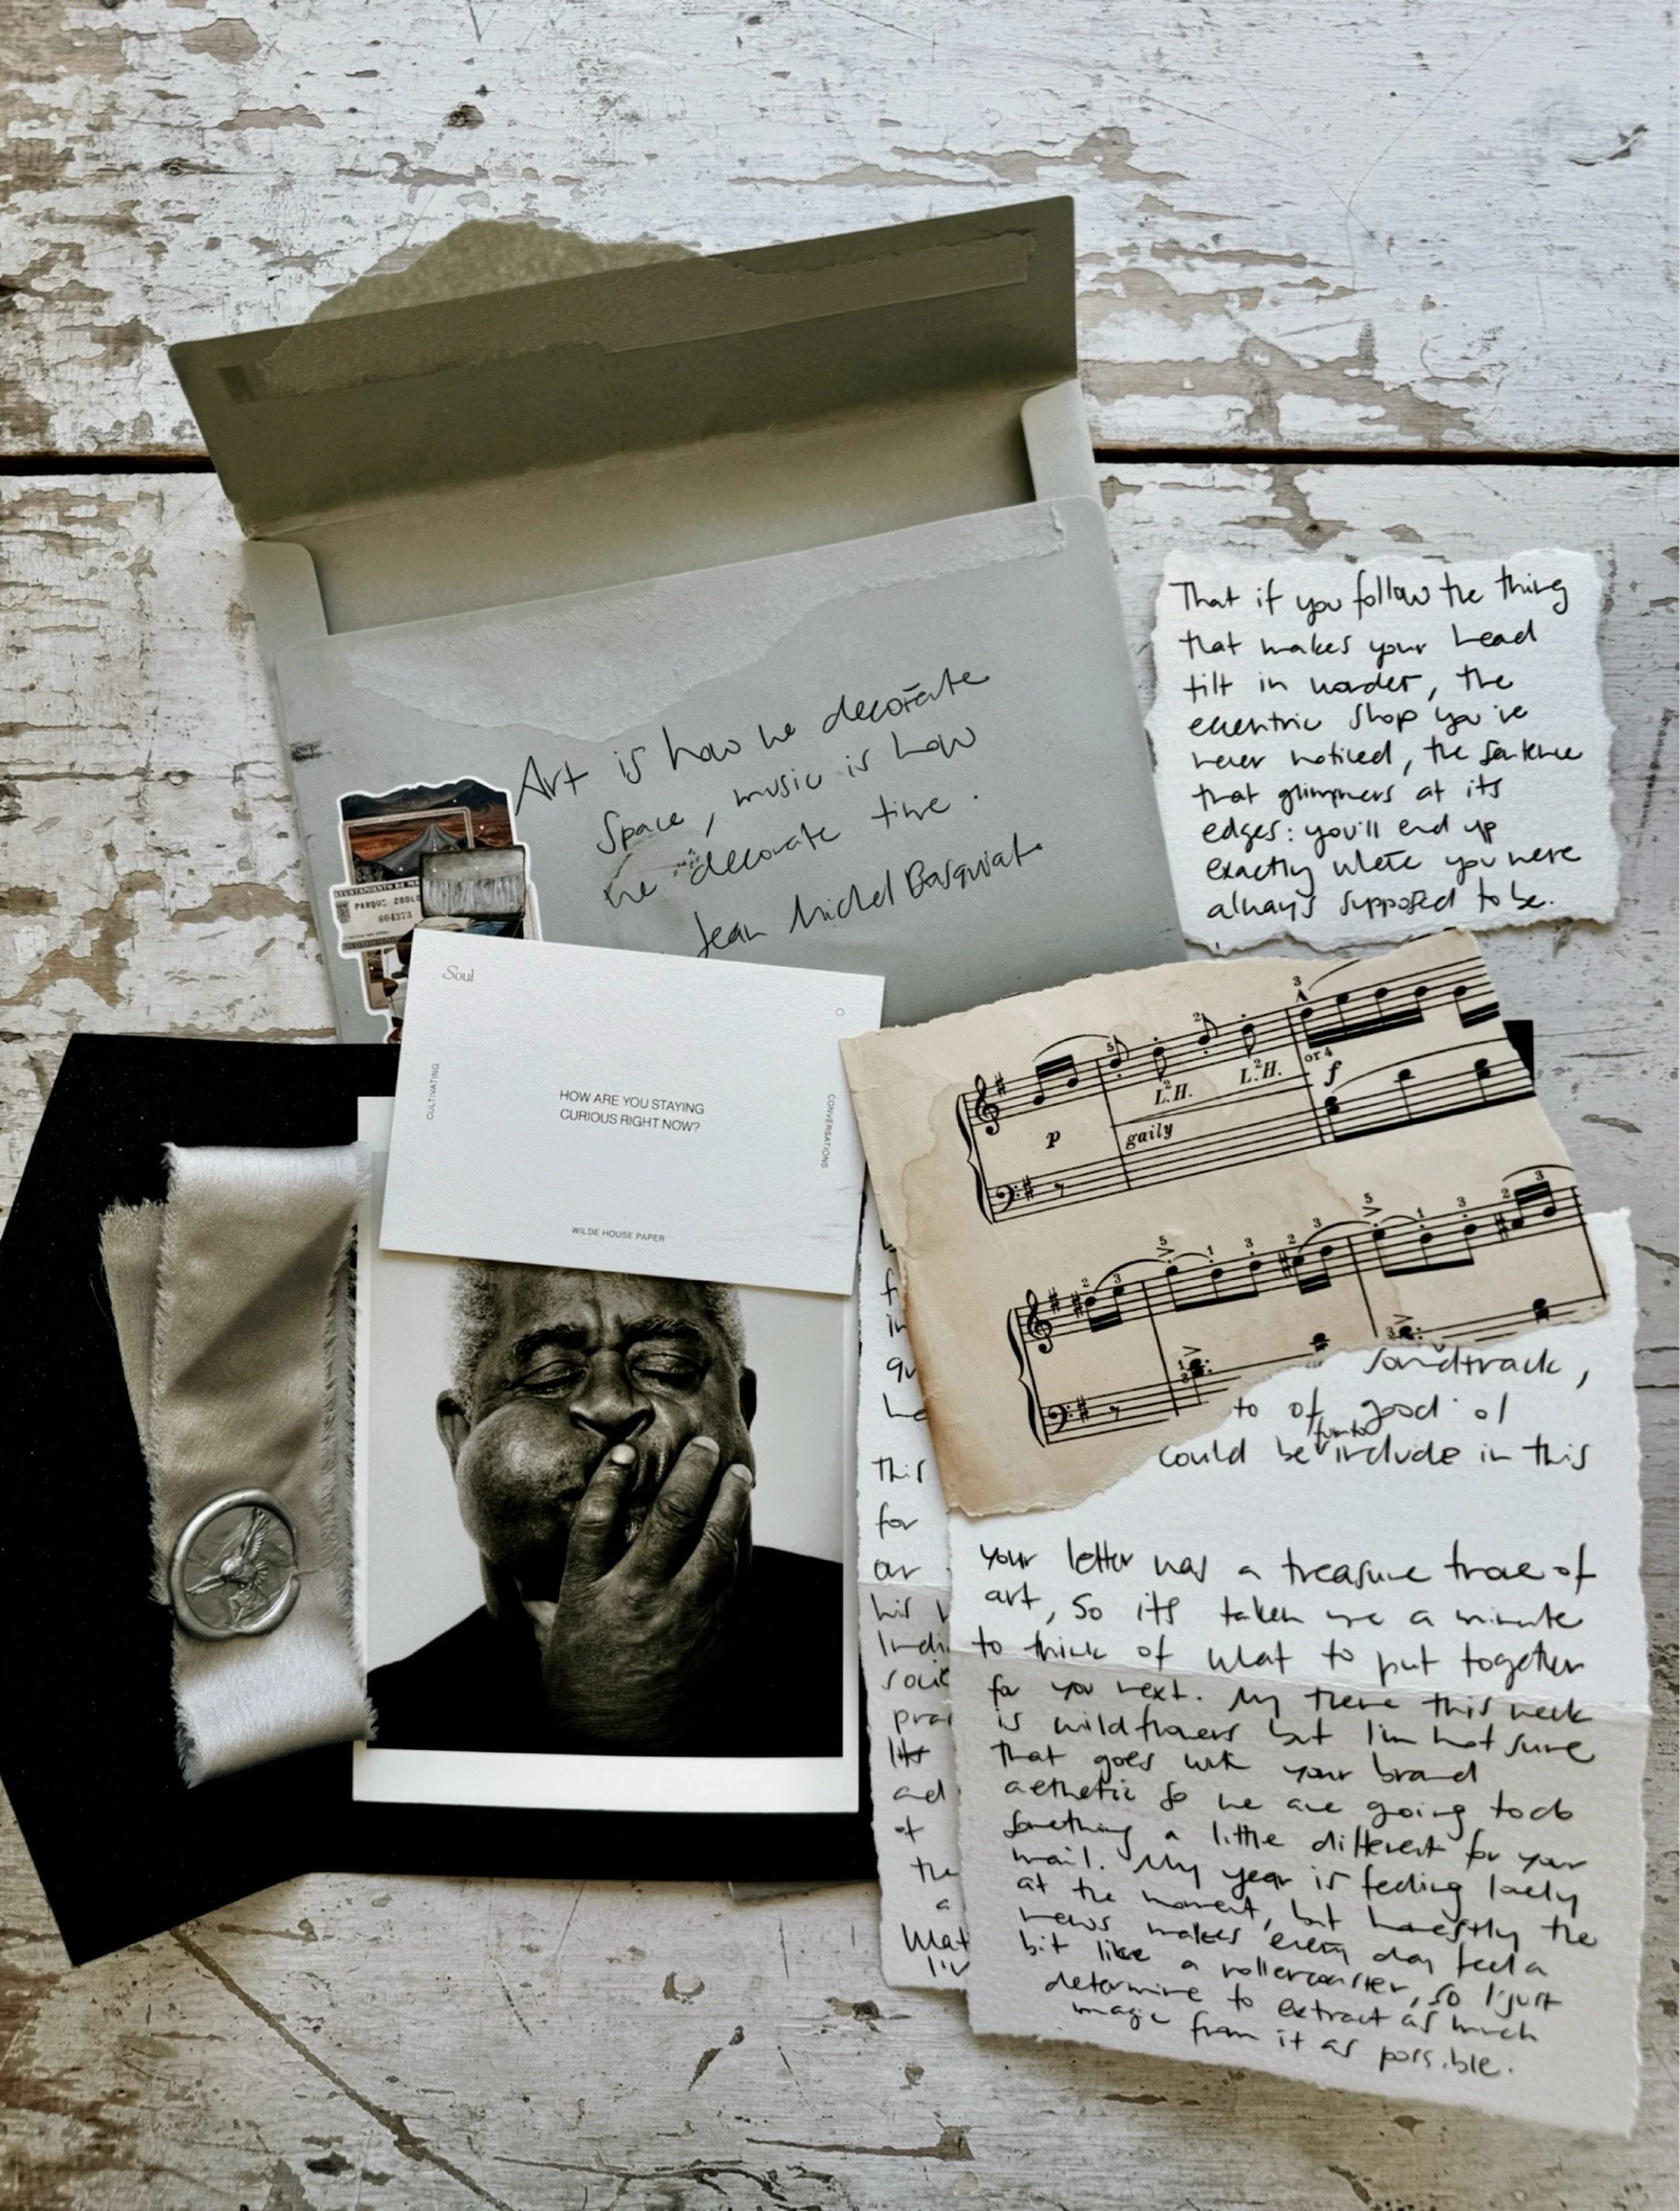 Art is how we decorate
Space, music is how
we decorate time.
Jean Michel Basquiat.
That if you follow the thing
that makes your head
tilt in wonder, the
eccentric shop you've
never noticed, the sentence
that glimmers at its
edges: you'll end up
exactly where you were
always supposed to be.
AYUNTAMIENTO DE
PARQUE ZOOLO
604373
Soul
CULTIVATING
HOW ARE YOU STAYING
CURIOUS RIGHT NOW?
CONVERSATIONS
WILDE HOUSE PAPER
3
5
2
or 4
L.H.
2
L.H.
2
f
p
gaily
2 3 5 1 3 2 3 5 1 3 2 3
soundtrack,
to of good ol
could be include in this
your letter was a treasure trove of
art, so its taken me a minute
to think of what to put together
for you next. My theme this week
is wildflowers but I'm not sure
that goes with your brand
aesthetic so we are going to do
something a little different for your
mail. My year is feeling lovely
at the moment, but honestly the
news makes every day feel a
bit like a rollercoaster, so I just
determine to extract as much
magic from it as possible.
This
for
his
of
the
a